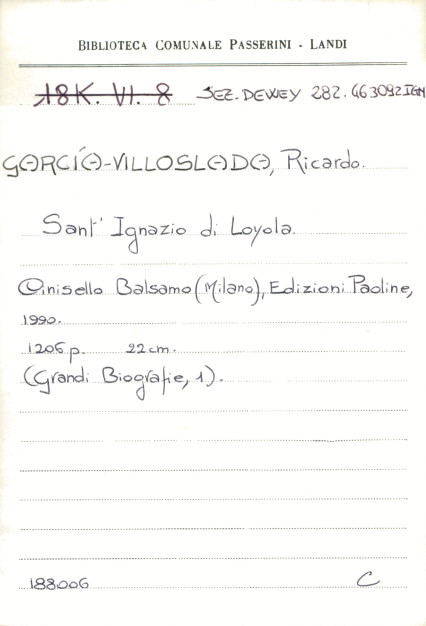 BIBLIOTECA COMUNALE PASSERINI - LANDI
18K. VI. 8 SEZ. DEWEY 282.463092 IGN
GARCÍA-VILLOSLADA, Ricardo.
Sant' Ignazio di Loyola.
Cinisello Balsamo (Milano), Edizioni Paoline,
1990.
1206 p. 22 cm.
(Grandi Biografie, 1).
188006 C